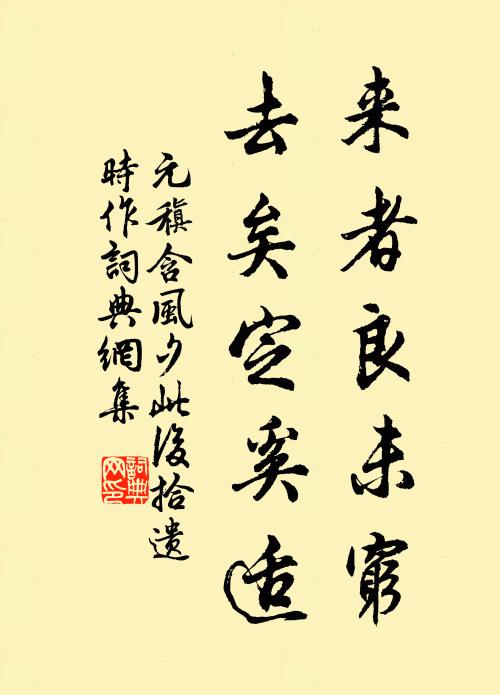 来者良未窮
去矣定奚适
元稹含風夕此後拾遺
時作詞典網集
詞典网印